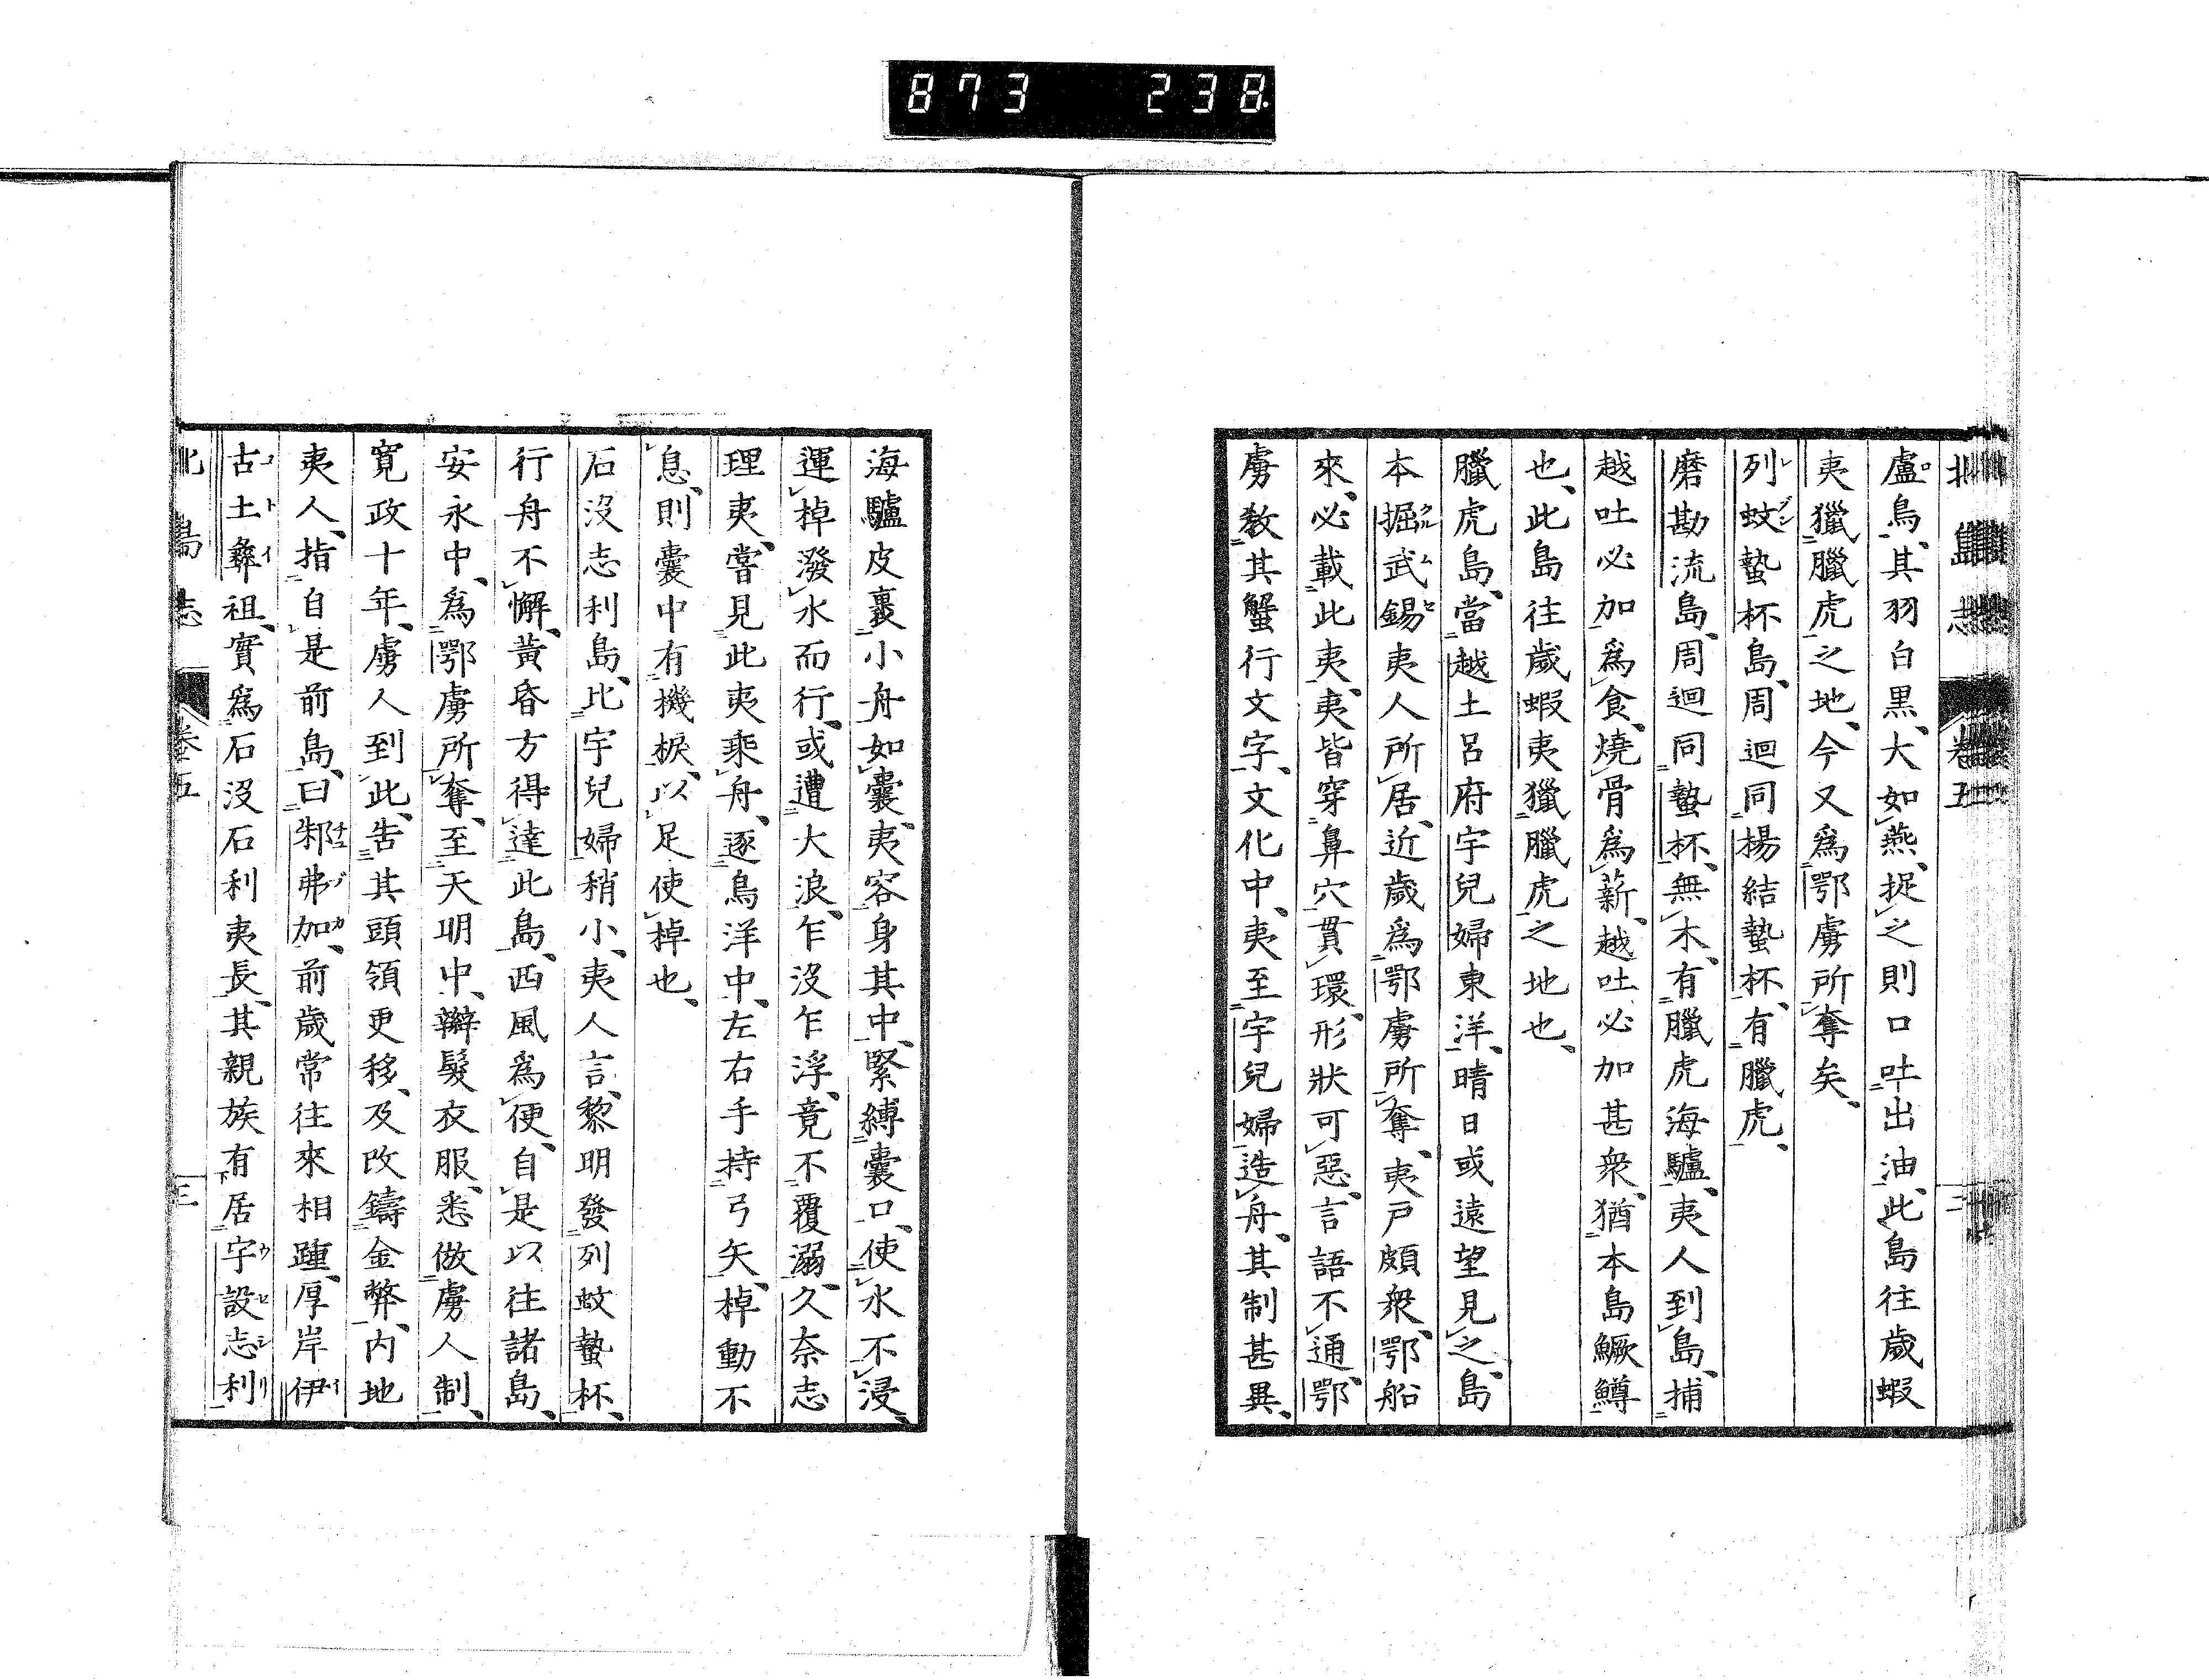 873 238.
北島志 卷五
盧鳥、其羽白黒、大如燕、捉之則口吐出油、此島往歲蝦
夷獵臘虎之地、今又爲鄂虜所奪矣、
列蚊蟄杯島、周迴同楊結蟄杯、有臘虎、
磨勘流島、周迴同蟄杯、無木、有臘虎海驢、夷人到島、捕
越吐必加爲食、燒骨爲薪、越吐必加甚衆、猶本島鱖鱒
也、此島往歲蝦夷獵臘虎之地也、
臘虎島、當越土呂府宇兒婦東洋、晴日或遠望見之、島
本掘武錫夷人所居、近歲爲鄂虜所奪、夷戸頗衆、鄂船
來、必載此夷、夷皆穿鼻穴貫環、形狀可惡、言語不通、鄂
虜教其蟹行文字、文化中、夷至宇兒婦造舟、其制甚異、
海驢皮裹小舟如囊、夷容身其中、緊縛囊口、使水不浸、
運棹潑水而行、或遭大浪、乍沒乍浮、竟不覆溺、久奈志
理夷、嘗見此夷乘舟、逐鳥洋中、左右手持弓矢、棹動不
息、則囊中有機棙、以足使棹也、
石沒志利島、比宇兒婦稍小、夷人言、黎明發列蚊蟄杯、
行舟不懈、黃昏方得達此島、西風爲便、自是以往諸島、
安永中、爲鄂虜所奪、至天明中、辮髮衣服、悉倣虜人制、
寬政十年、虜人到此、告其頭領更移、及改鑄金弊、內地
夷人、指自是前島、曰邾弗加、前歲常往來相踵、厚岸伊
古土彝祖、實爲石沒石利夷長、其親族有居宇設志利
北島志 卷五 三